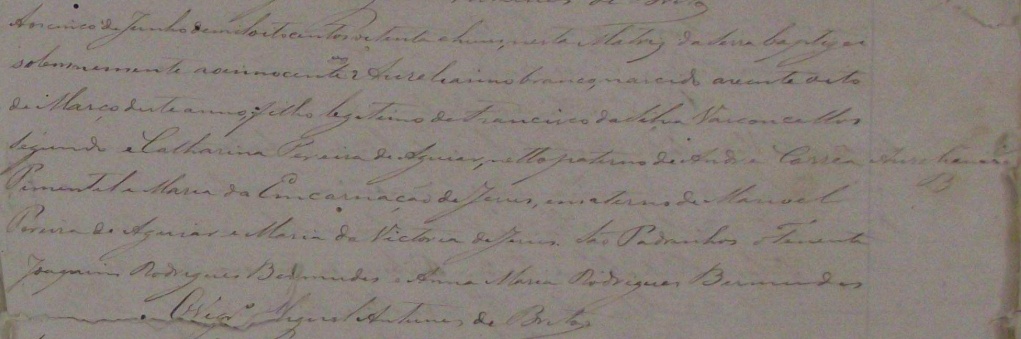 Antunes de Brito
Aos cinco de Junho de mil oitocentos setenta e hum, nesta Matriz da Serra baptizei
solemnemente ao innocente Aureliano branco, nascido a vinte oito
de Março deste anno, filho legitimo de Francisco da Silva Vasconcellos
segundo e Catharina Pereira de Aguiar, netto paterno de André Corrêa
Aureliano
B
Pimentel e Maria da Encarnação de Jesus, e materno de Manoel
Pereira de Aguiar e Maria da Victoria de Jesus. São Padrinhos o Tenente
Joaquim Rodrigues Bermudes e Anna Maria Rodrigues Bermudes
O Vigrº Miguel Antunes de Brito